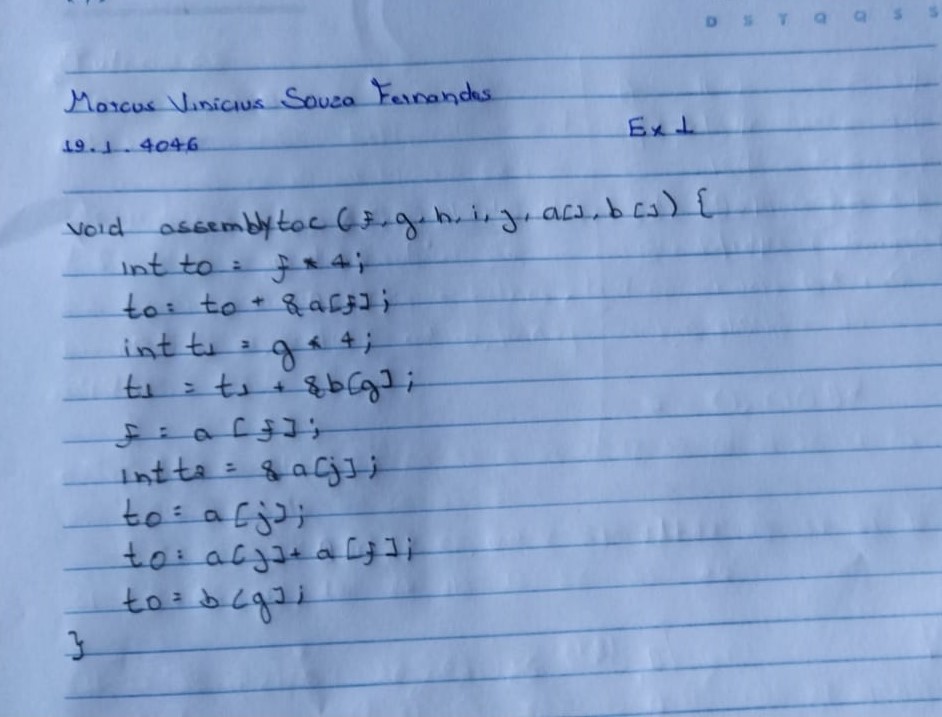 D S T Q Q S S
Marcus Vinicius Souza Fernandes
19.1.4046
Ex 1
void assemblytoc (f, g, h, i, j, a[], b[]) {
int t0 = f * 4;
t0 = t0 + &a[f];
int t1 = g * 4;
t1 = t1 + &b[g];
f = a[f];
int t2 = &a[j];
t0 = a[j];
t0 = a[j] + a[f];
t0 = b[g];
}